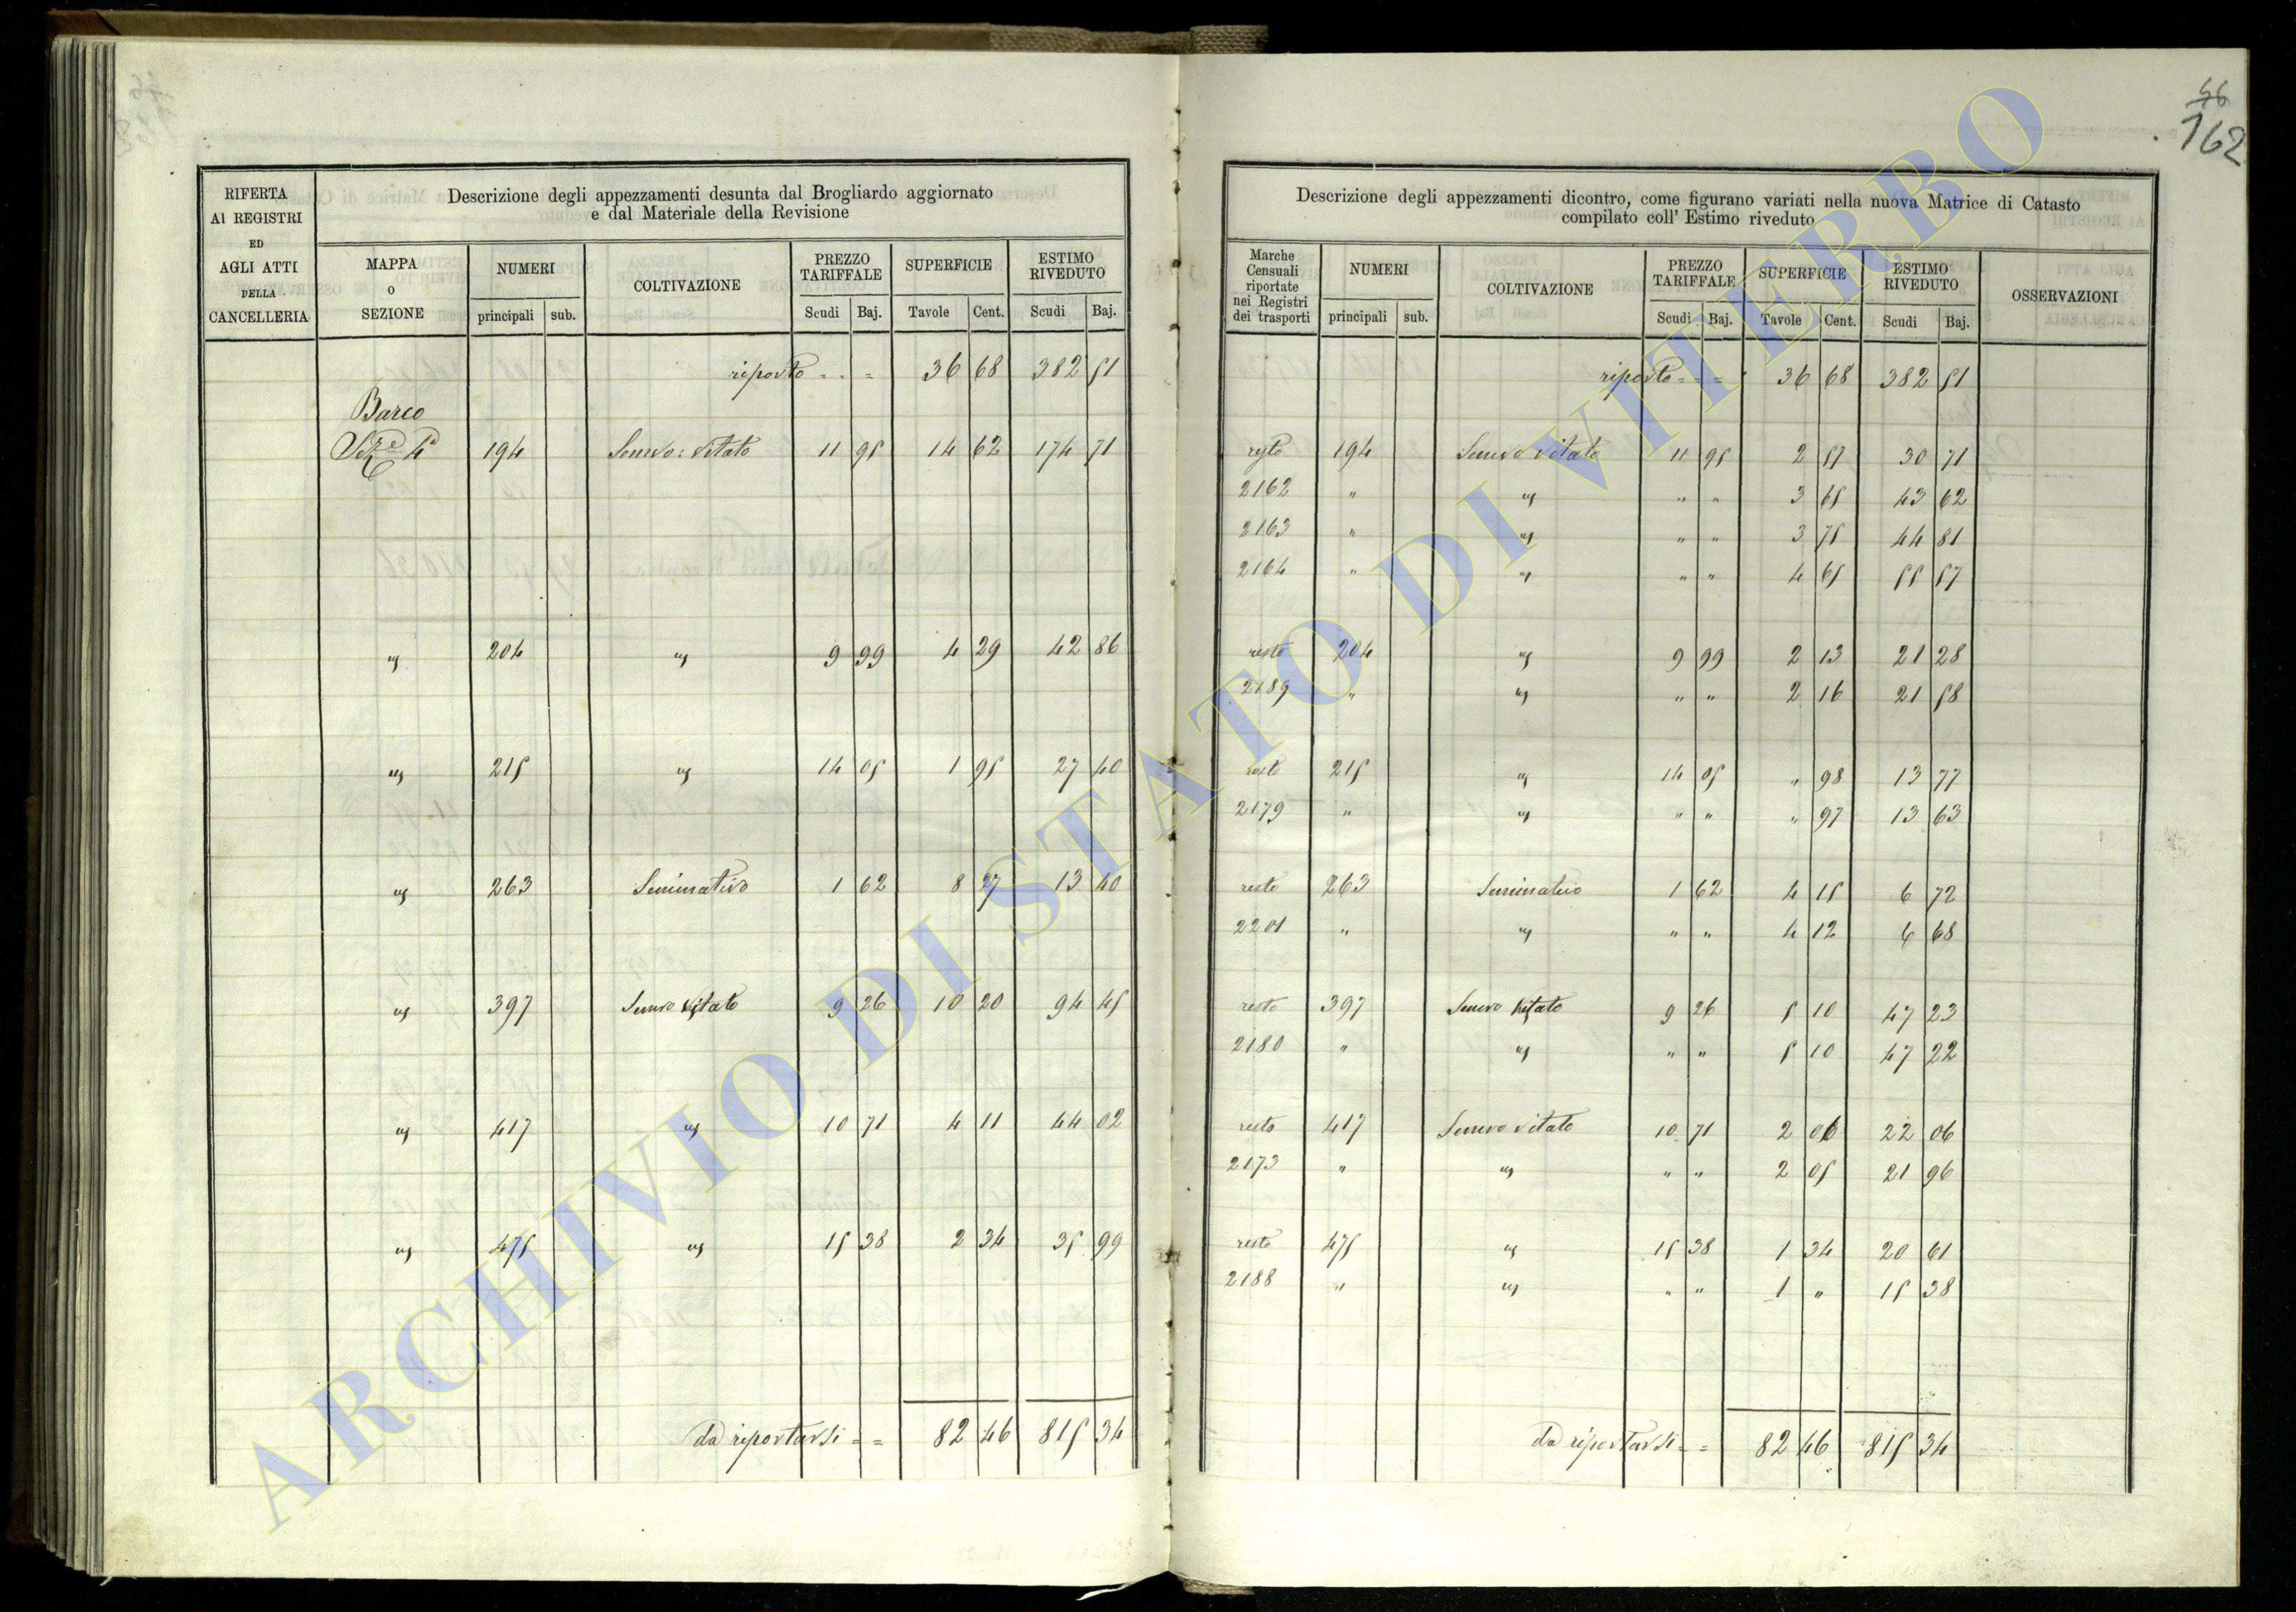 46
162
RIFERTA
AI REGISTRI
ED
AGLI ATTI
DELLA
CANCELLERIA
Descrizione degli appezzamenti desunta dal Brogliardo aggiornato
e dal Materiale della Revisione
MAPPA
O
SEZIONE
NUMERI
principali sub.
COLTIVAZIONE
PREZZO
TARIFFALE
Scudi Baj.
SUPERFICIE
Tavole Cent.
ESTIMO
RIVEDUTO
Scudi Baj.
riporto = = = 36 68 382 51
Barco
Sez.e 4a 194 Semvo: Vitato 11 95 14 62 174 71
" 204 " 9 99 4 29 42 86
" 215 " 14 05 1 95 27 40
" 263 Seminativo 1 62 8 27 13 40
" 397 Semvo Vitato 9 26 10 20 94 45
" 417 " 10 71 4 11 44 02
" 475 " 15 38 2 34 35 99
da riportarsi = = 82 46 815 34
Descrizione degli appezzamenti dicontro, come figurano variati nella nuova Matrice di Catasto
compilato coll' Estimo riveduto
Marche
Censuali
riportate
nei Registri
dei trasporti
NUMERI
principali sub.
COLTIVAZIONE
PREZZO
TARIFFALE
Scudi Baj.
SUPERFICIE
Tavole Cent.
ESTIMO
RIVEDUTO
Scudi Baj.
OSSERVAZIONI
riporto = = = 36 68 382 51
resto 194 Semvo Vitato 11 95 2 57 30 71
2162 " " " " 3 65 43 62
2163 " " " " 3 75 44 81
2164 " " " " 4 65 55 57
resto 204 " 9 99 2 13 21 28
2189 " " " " 2 16 21 58
resto 215 " 14 05 " 98 13 77
2179 " " " " " 97 13 63
resto 263 Seminativo 1 62 4 15 6 72
2201 " " " " 4 12 6 68
resto 397 Semvo Vitato 9 26 5 10 47 23
2180 " " " " 5 10 47 22
resto 417 Semvo Vitato 10 71 2 06 22 06
2173 " " " " 2 05 21 96
resto 475 " 15 38 1 34 20 61
2188 " " " " 1 " 15 38
da riportarsi = = 82 46 815 34
ARCHIVIO DI STATO DI VITERBO